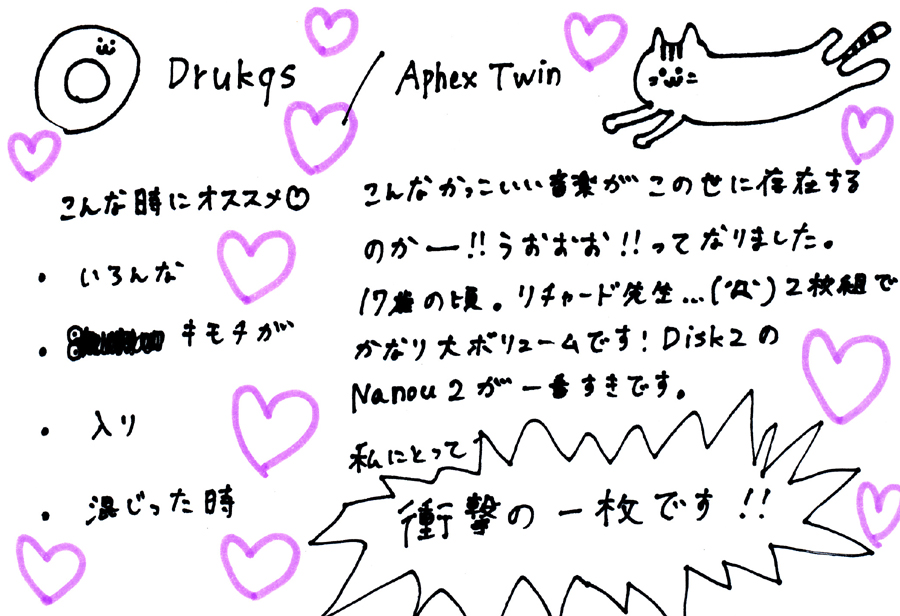 Drukqs / Aphex Twin
こんな時にオススメ
・ いろんな
・ キモチが
・ 入り
・ 混じった時
こんなかっこいい音楽がこの世に存在する
のかー!!うおおお!!ってなりました。
17歳の頃。リチャード先生...(´Д`)2枚組で
かなり大ボリュームです!Disk2の
Nanou2が一番すきです。
私にとって
衝撃の一枚です!!